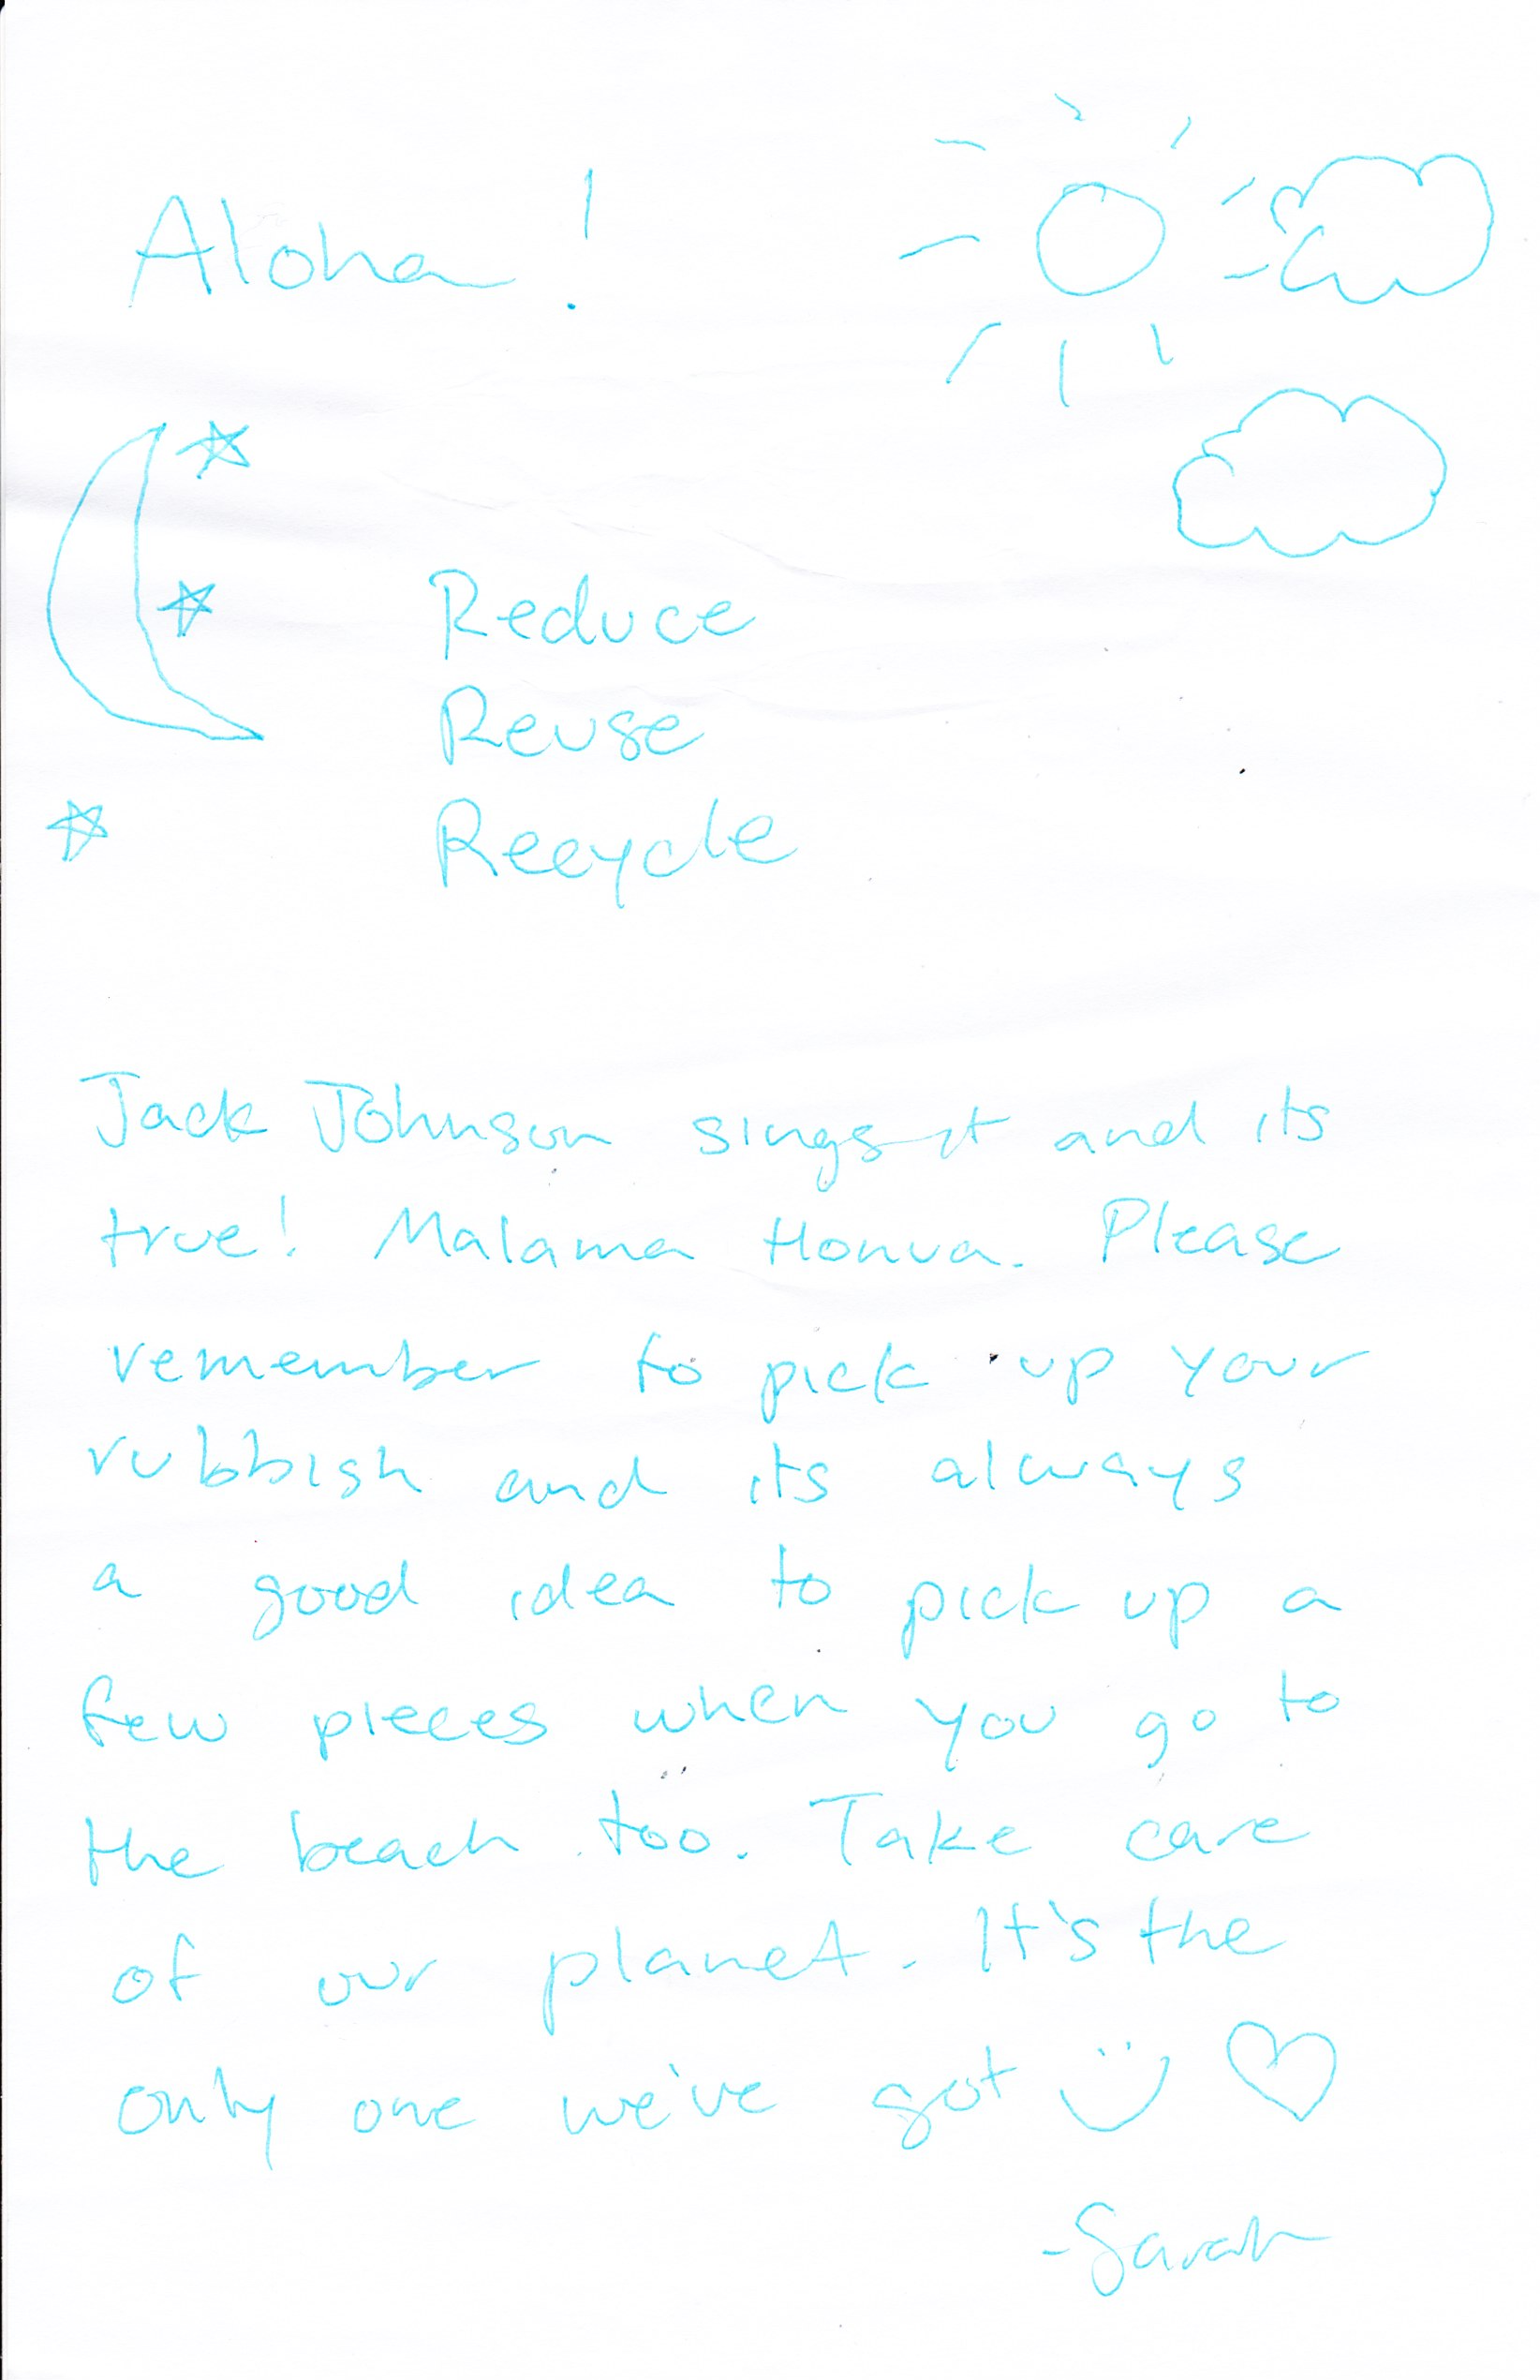 Aloha!
Reduce
Reuse
Recycle
Jack Johnson sings it and its
true! Malama Honua. Please
remember to pick up your
rubbish and its always
a good idea to pick up a
few pieces when you go to
the beach too. Take care
of our planet. It's the
only one we've got
-Sarah